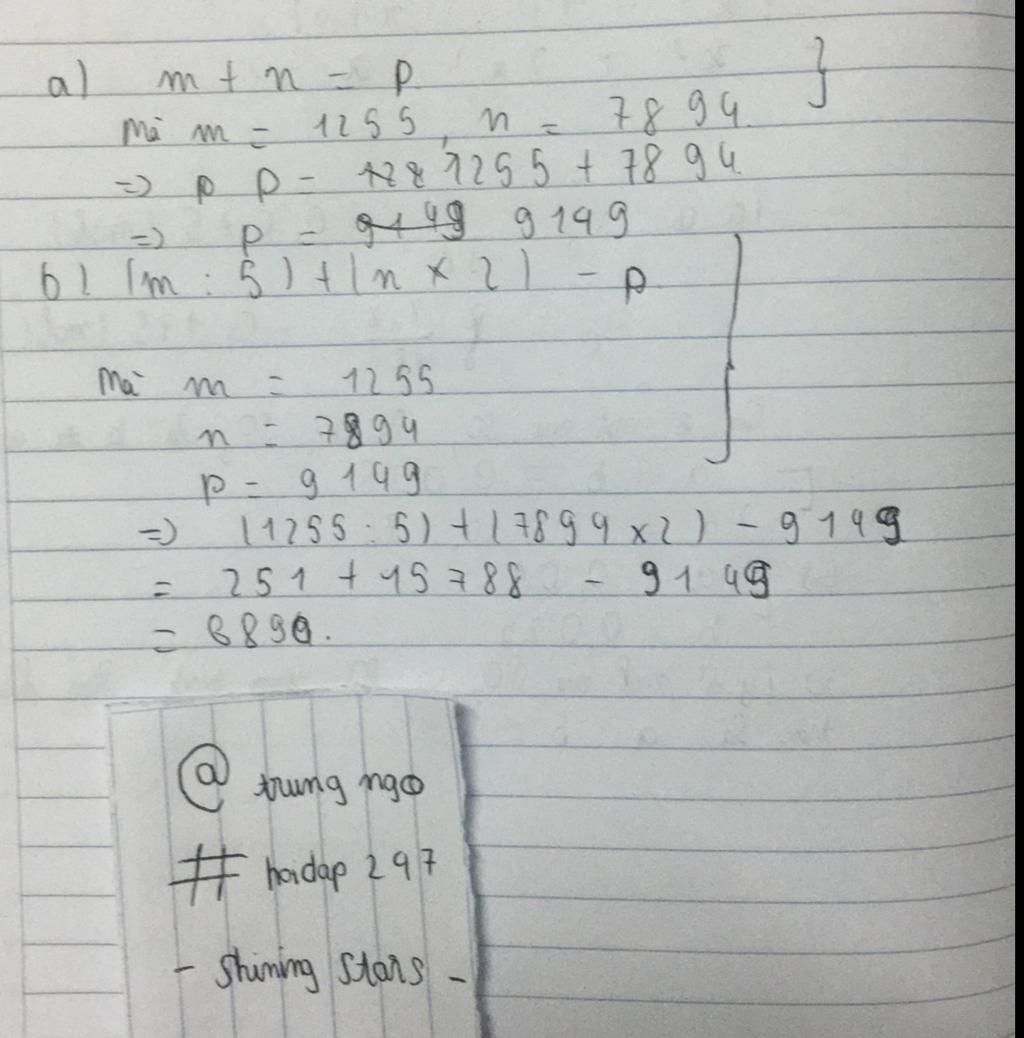 a) m + n = p
Mà m = 1255, n = 7894
=> p p = 128 1255 + 7894
=> p = 9149 9149
b) (m : 5) + (n × 2) - p
Mà m = 1255
n = 7894
p = 9149
=> (1255 : 5) + (7894 × 2) - 9149
= 251 + 15788 - 9149
= 6890.
@ trung ngo
# hoidap 297
- Shining Stars -